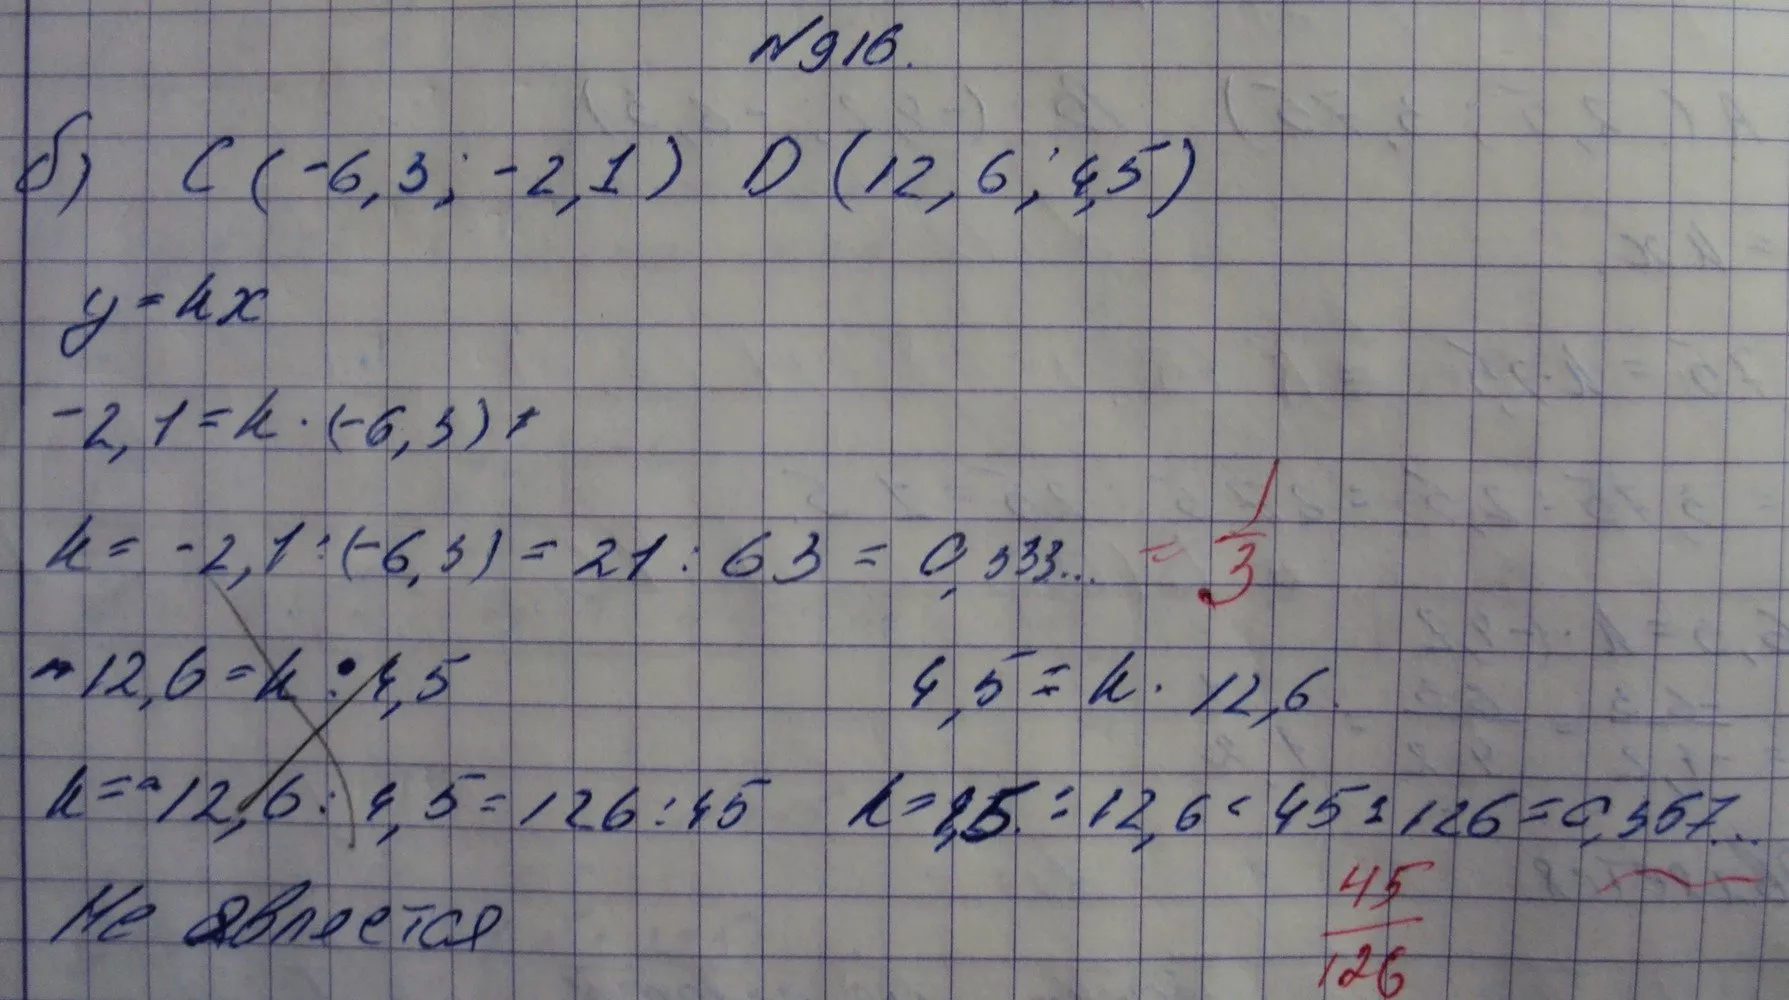 №916.
б) C (-6,3; -2,1) D (12,6; 4,5)
y = kx
-2,1 = k · (-6,3)
k = -2,1 : (-6,3) = 21 : 63 = 0,333... = 1/3
-12,6 = k : 4,5 4,5 = k · 12,6.
k = -12,6 : 4,5 = 126 : 45 k = 4,5 : 12,6 = 45 : 126 = 0,357...
Не является 45/126